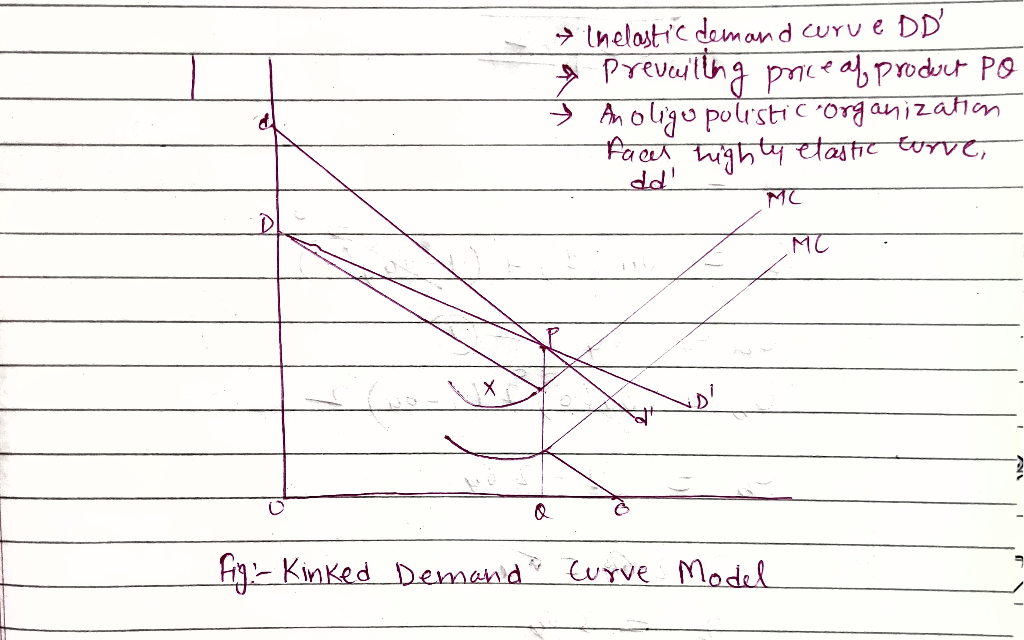 → Inelastic demand curve DD'
→ Prevailling price of product PQ
→ An oligopolistic organization
faces highly elastic curve,
dd'
MC
d
D
MC
P
X
D'
d'
O
Q
C
Fig:- Kinked Demand Curve Model